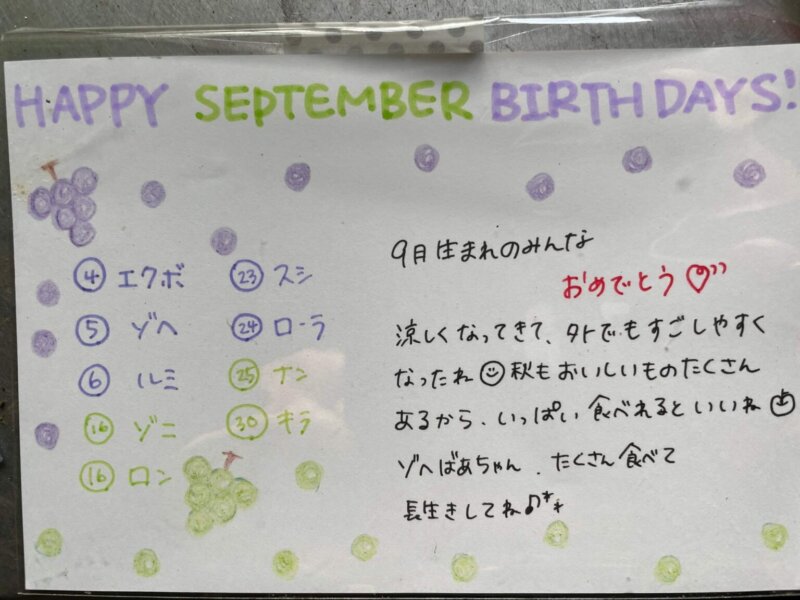 HAPPY SEPTEMBER BIRTHDAYS!
④ エクボ
⑤ ゾへ
⑥ ルミ
⑯ ゾニ
⑯ ロン
㉓ スシ
㉔ ローラ
㉕ ナン
㉚ キラ
9月生まれのみんな
おめでとう♡
涼しくなってきて、外でもすごしやすく
なったね☺秋もおいしいものたくさん
あるから、いっぱい食べれるといいね
ゾへばあちゃん、たくさん食べて
長生きしてね♪